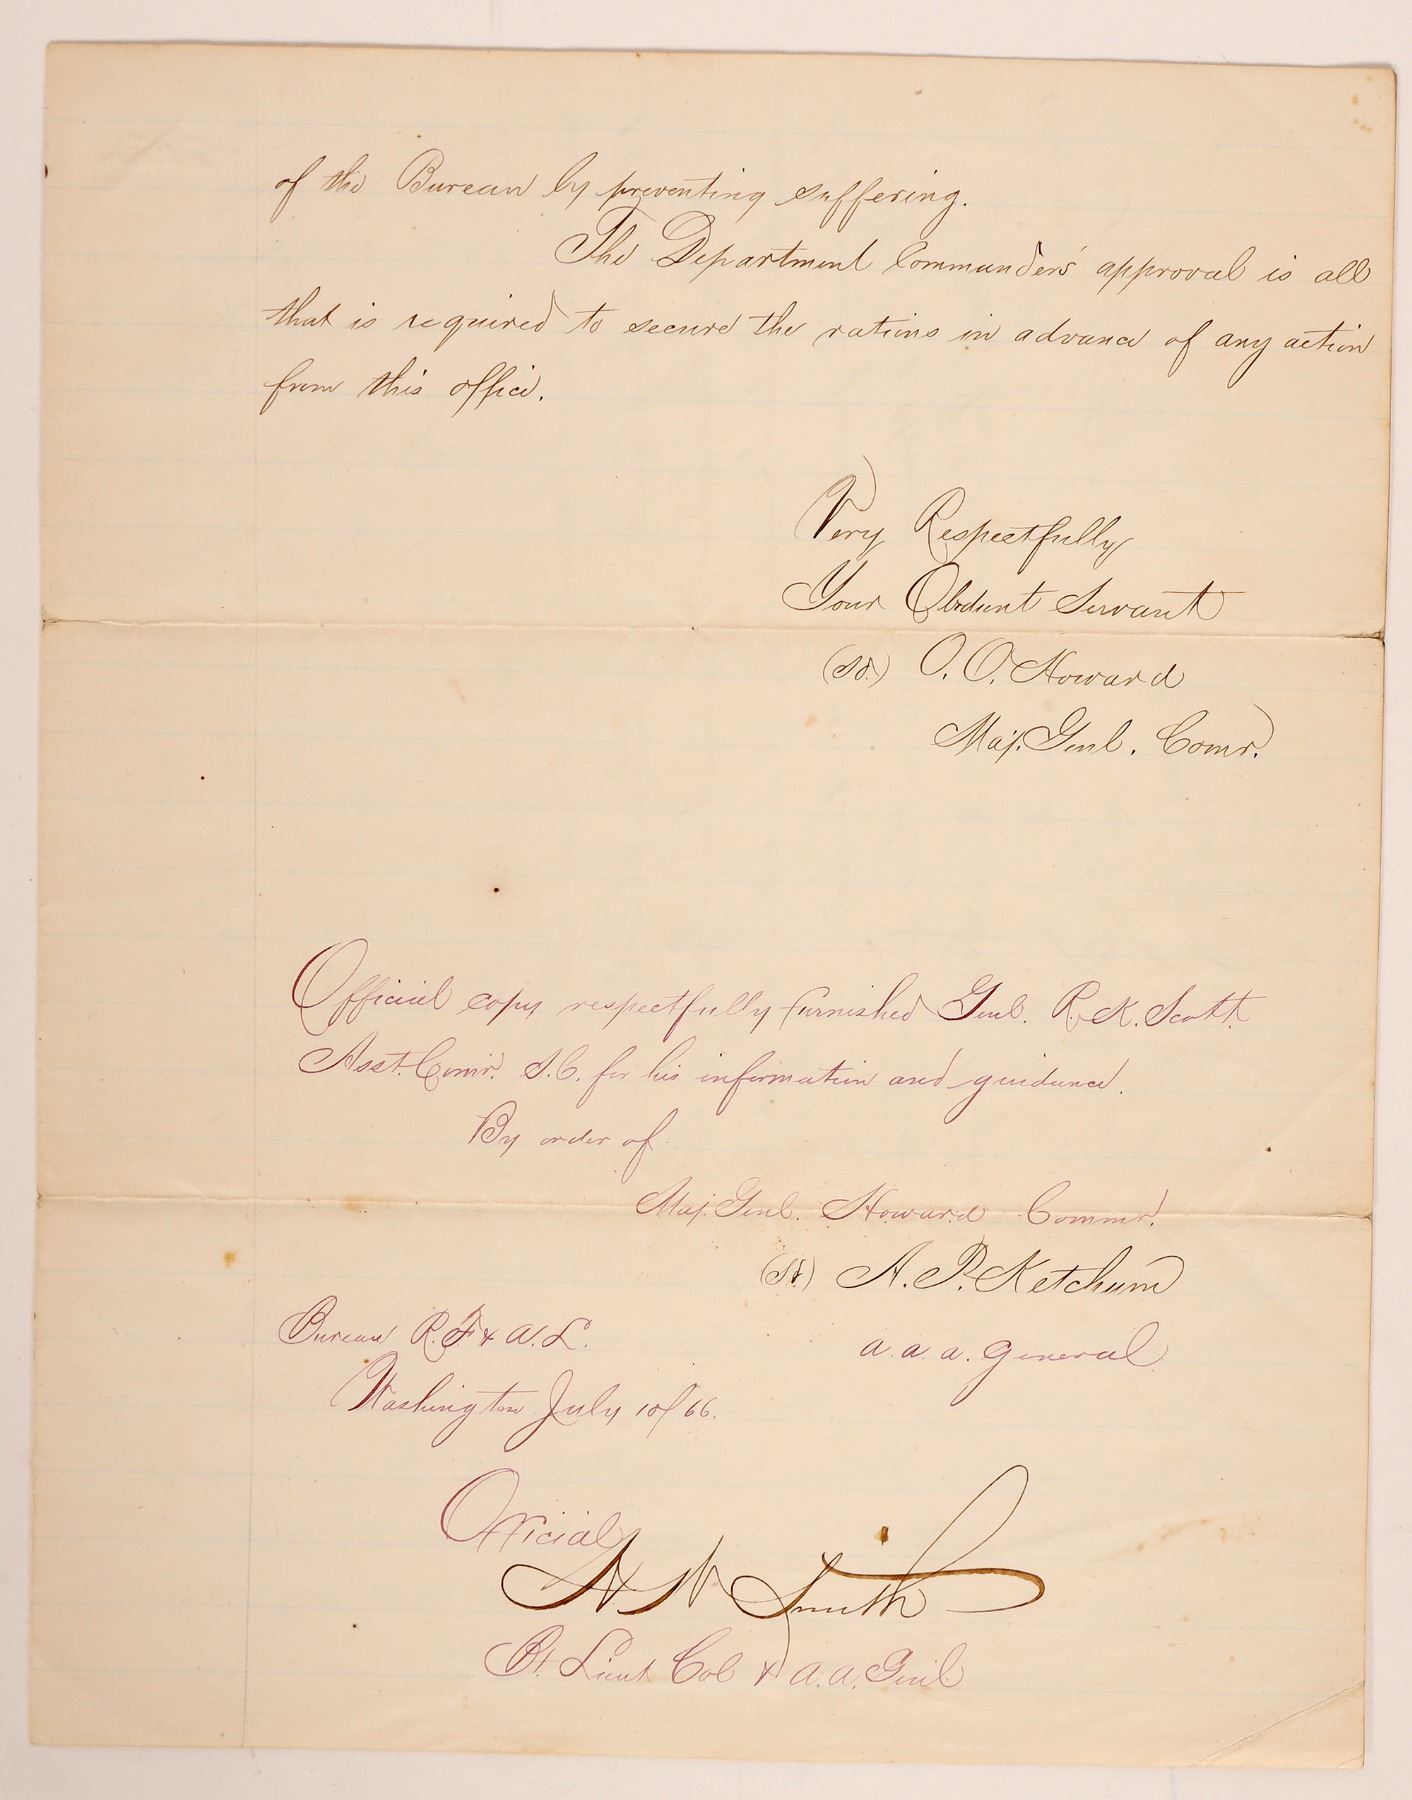 of the Bureau by preventing suffering.
The Department Commander's approval is all
that is required to secure the rations in advance of any action
from this office.
Very Respectfully
Your Obedient Servant
(Sd.) O. O. Howard
Maj. Genl. Comr.
Official copy respectfully furnished Genl. R. K. Scott
Asst. Comr. S.C. for his information and guidance.
By order of
Maj. Genl. Howard Commr.
(Sd.) A. P. Ketchum
Bureau R. F. & A. L.
a. a. a. General
Washington July 10/66.
Official
H W Smith
Bt. Lieut Col & a. a. Genl